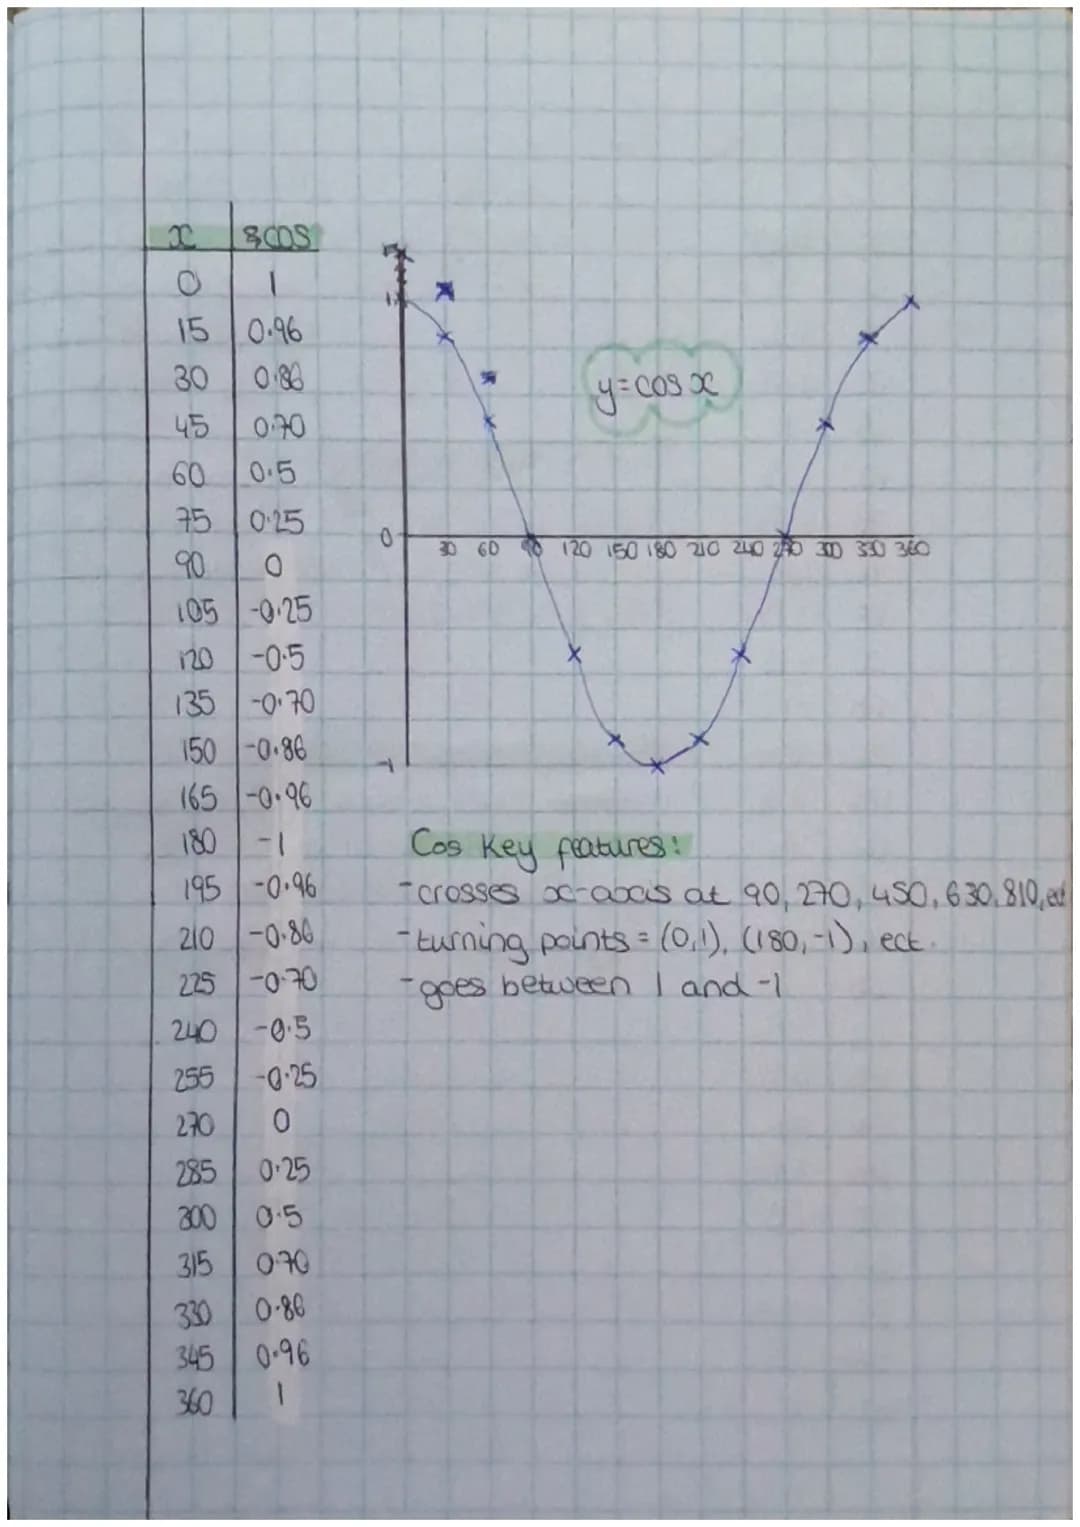 x cos
0 1
15 0.96
30 0.86
45 0.70
60 0.5
75 0.25
90 0
105 -0.25
120 -0.5
135 -0.70
150 -0.86
165 -0.96
180 -1
195 -0.96
210 -0.86
225 -0.70
240 -0.5
255 -0.25
270 0
285 0.25
300 0.5
315 0.70
330 0.86
345 0.96
360 1
y=cos x
0
30 60 90 120 150 180 210 240 270 300 330 360
-1
Cos Key features:
-crosses x-axis at 90, 270, 450, 630, 810, ect
-turning points = (0,1), (180,-1), ect.
-goes between 1 and -1